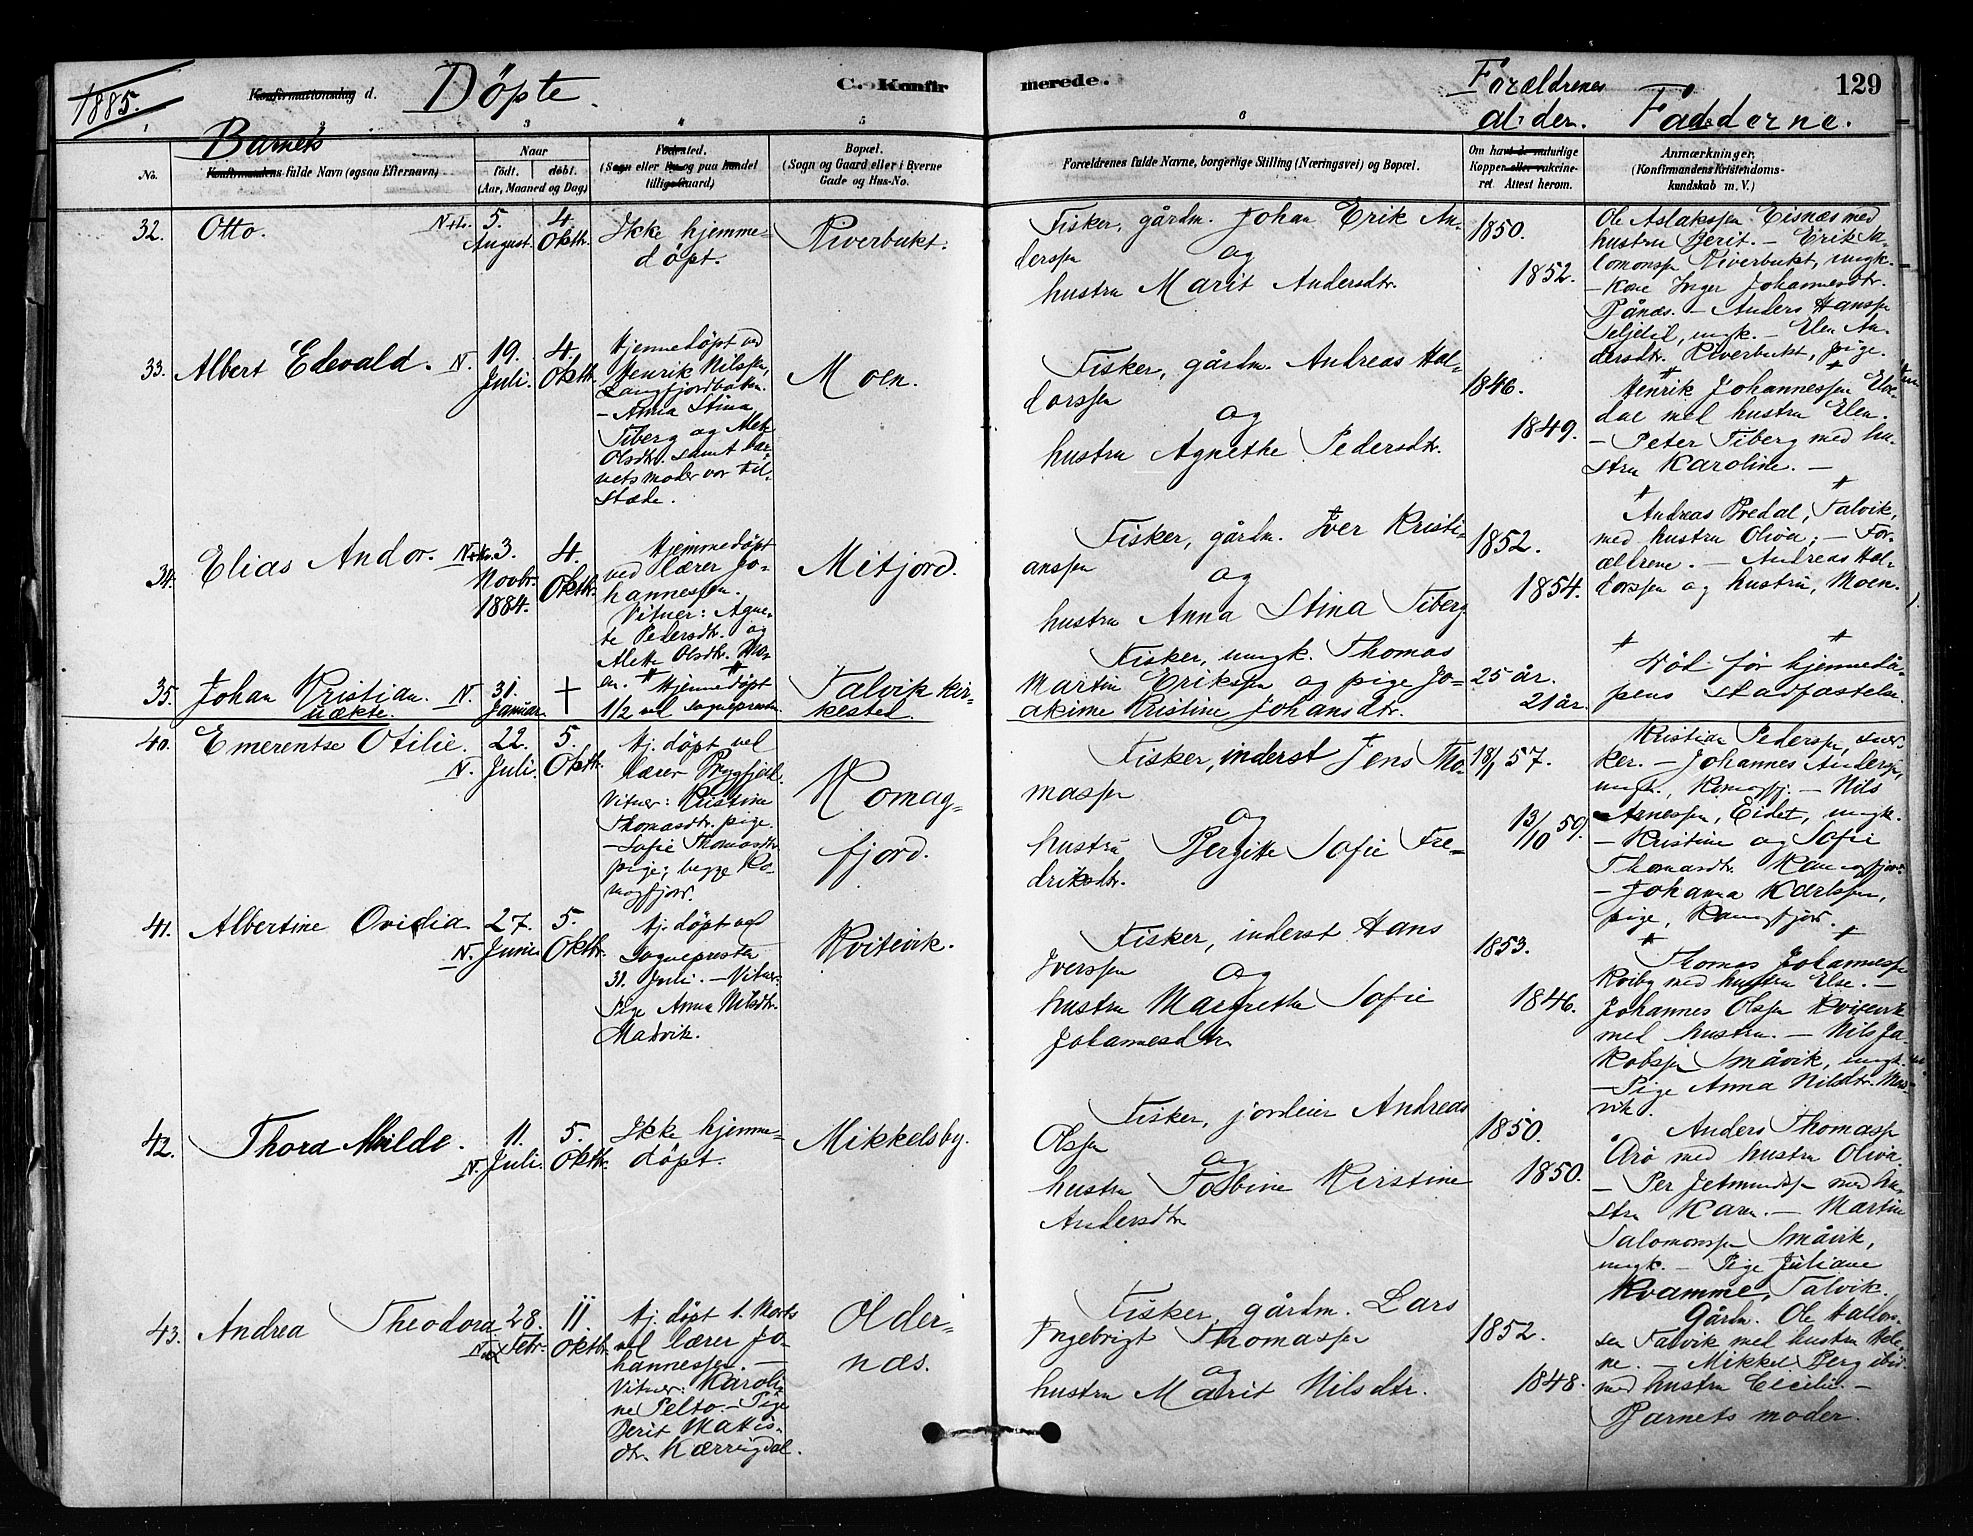 1885.
Konfirmationsdag d.
Döpte.
C. Konfir
merede.
Forældrenes
alder.
Fadderne.
129
1
3
4
5
6
Barnets
No.
Konfirmandens fulde Navn (ogsaa Efternavn)
Naar
födt. döbt.
(Aar, Maaned og Dag)
Födested.
(Sogn eller By og paa Landet
tillige Gaard)
Bopæl.
(Sogn og Gaard eller i Byerne
Gade og Hus-No.
Forældrenes fulde Navne, borgerlige Stilling (Næringsvei) og Bopæl.
Om havt de naturlige
Kopper eller vakcine-
ret. Attest herom.
Anmærkninger.
(Konfirmandens Kristendoms-
kundskab m. V.)
32.
Otto.
5.
August.
4.
Oktbr.
Ikke hjemme-
döpt.
Riverbukt.
Fisker, gårdm. Johan Erik An-
derssen
og
hustru Marit Andersdtr.
1850.
1852.
Ole Aslakssen Eisnæs med
hustru Berit. – Erik Sa-
lomonsen Riverbukt, ungk.
– Kone Inger Johannesdtr.
– Anders Hanssen
ungk. – Elen An-
dersdtr. Riverbukt, pige.
33.
Albert Edevald.
N.
19.
Juli.
4.
Oktbr.
Hjemmedöpt ved
Henrik Nilssen,
Langfjordbotn.
– Anna Stina
Fiberg og Alet
Olsdtr. samt bar-
nets moder var til-
stæde.
Moen.
Fisker, gårdm. Andreas Hal-
dorssen
og
hustru Agnethe Pedersdtr.
1846.
1849.
Henrik Johannessen Elve-
dal med hustru Elen.
– Peter Fiberg med hu-
stru Karoline. –
34.
Elias Andor.
3.
Novbr.
1884.
4.
Oktbr.
Hjemmedöpt
ved lærer Jo-
hannessen.
Vitner: Agne-
te Pedersdtr. og
Alette Olsdtr. Mo-
en.
Mitfjord.
Fisker, gårdm. Iver Kristi-
anssen
og
hustru Anna Stina Fiberg
1852.
1854.
Andreas Bredal, Talvik,
med hustru Oliva; – For-
ældrene. – Andreas Hal-
dorssen og hustru, Moen.
35.
Johan Kristian.
uækte.
N.
31.
Januar.
+
Hjemmedöpt
1/2 ved sogneprestn.
Talvik kir-
kested.
Fisker, ungk. Thomas
Martin Erikssen og pige Jo-
akime Kristine Johansdtr.
25 år.
21 år.
Död för hjemmedå-
pens stadfæstelse.
40.
Emerentse Otilie.
N.
22.
Juli.
5.
Oktbr.
Hj. döpt ved
lærer Bryggfjeld.
Vitner: Kristine
Thomasdtr. pige.
– Sofie Thomasdtr.
pige; begge Ko-
magfjord.
Komag-
fjord.
Fisker, inderst Jens Tho-
massen
og
hustru Bergitte Sofie Fre-
driksdtr.
18/1 57.
13/10 59.
Kristian Pederssen,
– Johannes Anderssen,
ungk., Komagfj. – Nils
Arnessen, Eidet, ungk.
– Kristine og Sofie
Thomasdtr. Komagfjord.
– Johanna Karlssen,
pige, Komagfjord.
41.
Albertine Ovidia
N.
27.
Juni.
5.
Oktbr.
Hj. döpt ved
Sogneprestn
31. Juli. – Vitner:
Pige Anna Nilsdtr.
Masvik.
Kvitevik.
Fisker, inderst Hans
Iverssen
og
hustru Margrethe Sofie
Johannesdtr.
1853.
1846.
Thomas Johannessen
med hustru Else. –
Johannes Olssen Kvitevik
med hustru. – Nils Ja-
kobssen Småvik, ungk.
– Pige Anna Nilsdtr. Mas-
vik.
42.
Thora Milde.
N.
11.
Juli.
5.
Oktbr.
Ikke hjemme-
döpt.
Mikkelsby.
Fisker, jordeier Andreas
Olssen
og
hustru Tobine Kirstine
Andersdtr.
1850.
1850.
Anders Thomassen
Årö med hustru Oliva.
– Per Jetmundssen med hu-
stru Karen. – Martin
Salomonssen Småvik,
ungk. – Pige Juliane
Kvamme, Talvik.
43.
Andrea Theodora
28.
Febr.
11.
Oktbr.
Hj. döpt 1. Marts
ved lærer Jo-
hannessen. –
Vitner: Karoli-
ne Pelto. – Pige
Berit Mattis-
dtr. Kærringdal.
Older-
næs.
Fisker, gårdm. Lars
Ingebrigt Thomassen
og
hustru Marit Nilsdtr.
1852.
1848.
Gårdm. Ole
Talvik med hustru
– Mikkel Berg ibid.
med hustru Cecilie. –
Barnets moder.